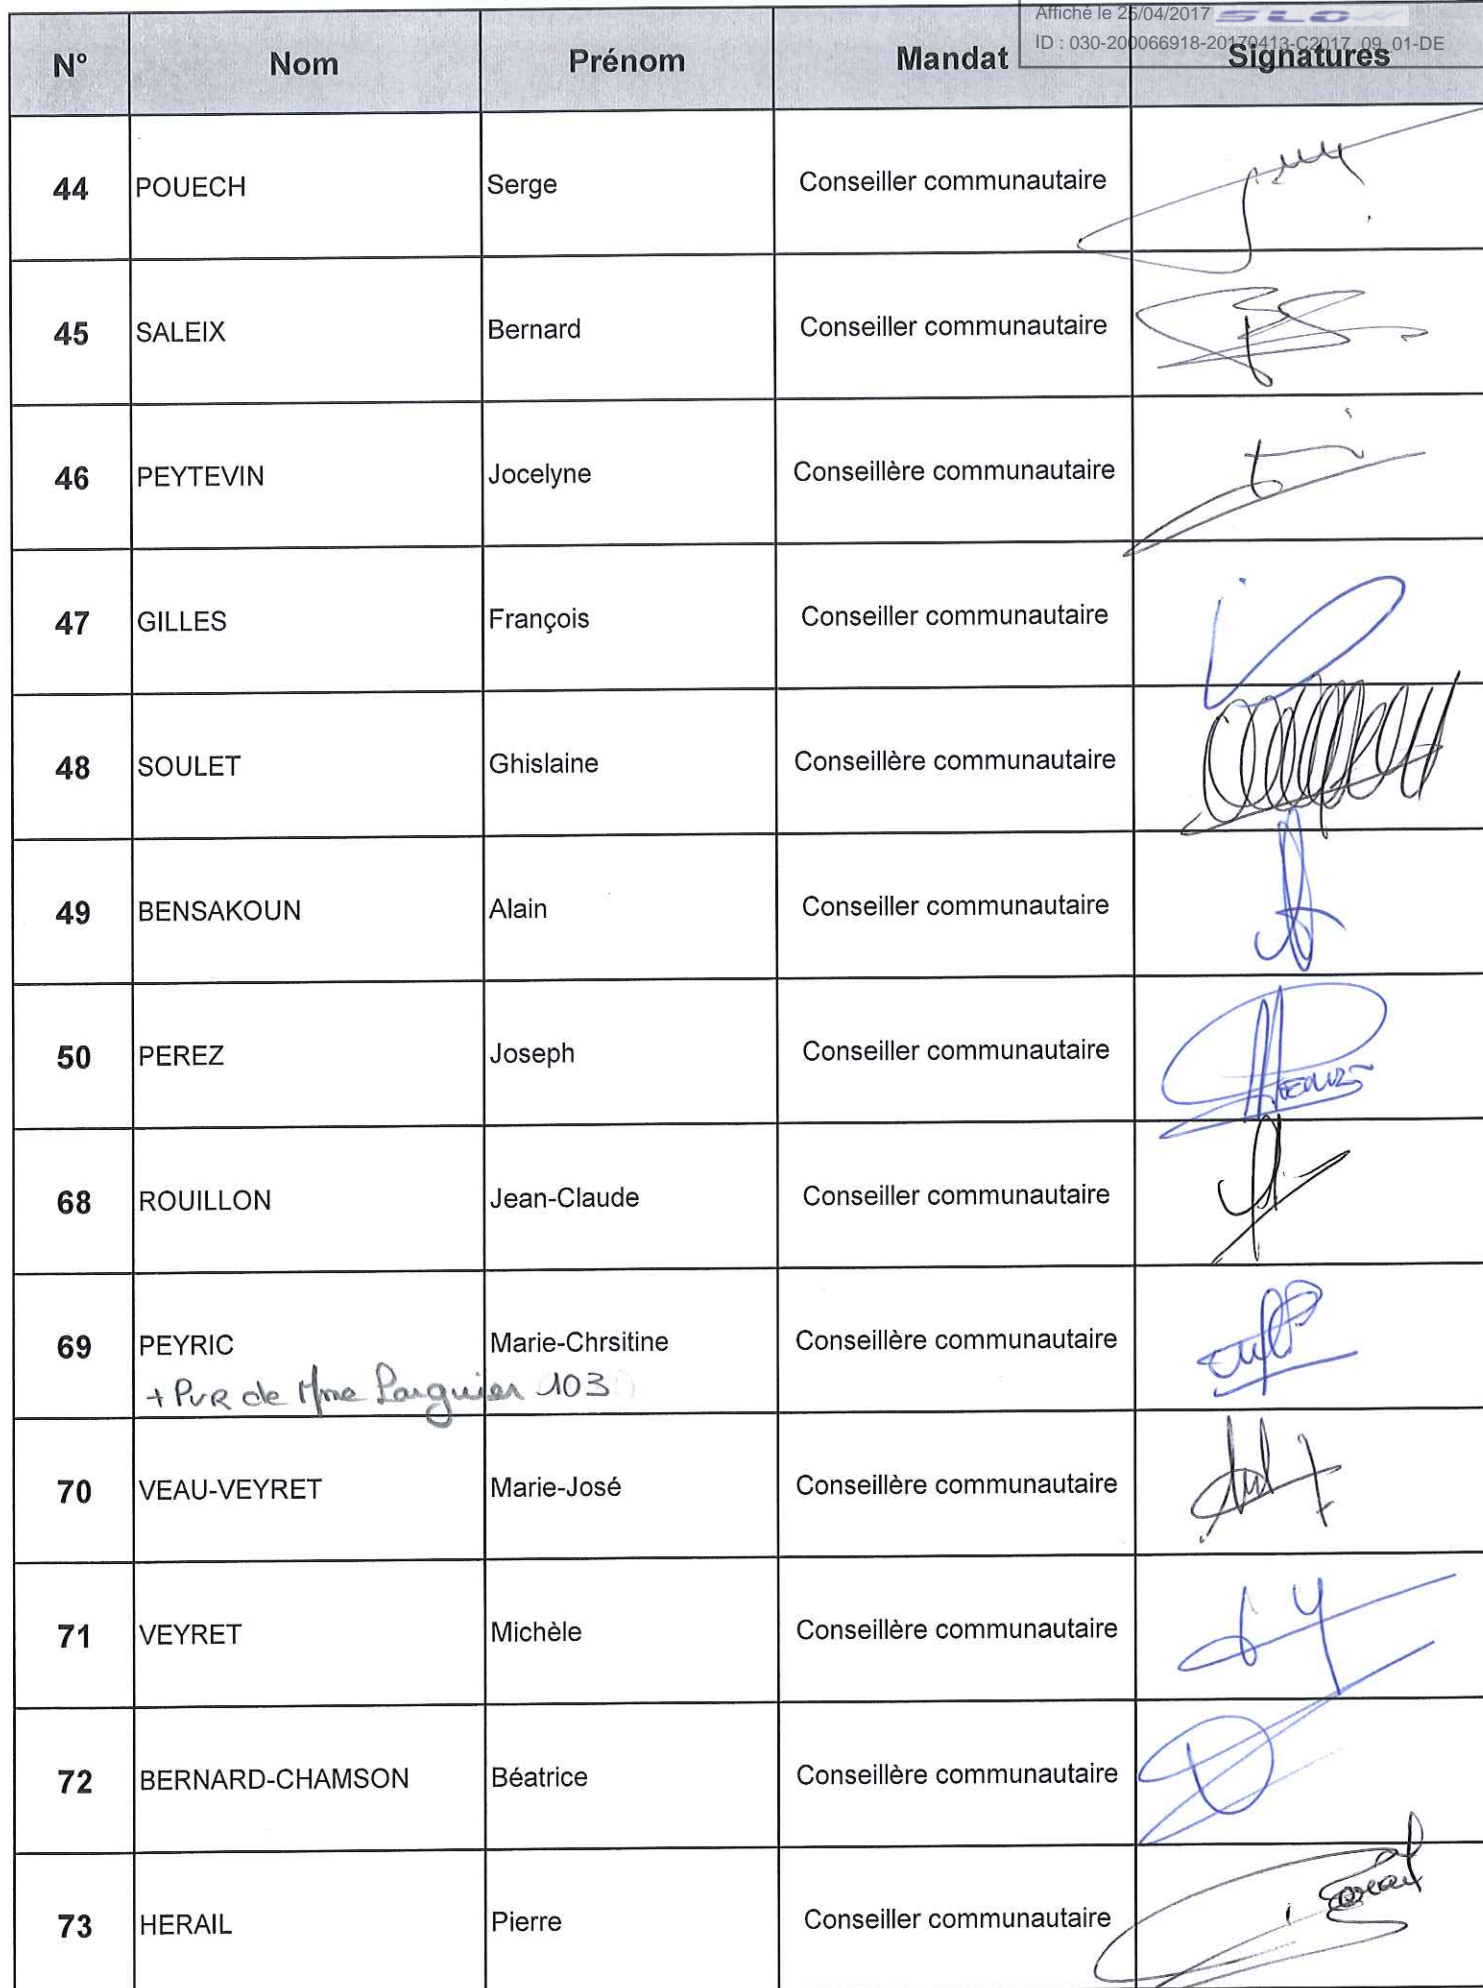 Affiché le 25/04/2017 SLOW
ID : 030-200066918-20170413-C2017_09_01-DE
N° Nom Prénom Mandat Signatures
44 POUECH Serge Conseiller communautaire
45 SALEIX Bernard Conseiller communautaire
46 PEYTEVIN Jocelyne Conseillère communautaire
47 GILLES François Conseiller communautaire
48 SOULET Ghislaine Conseillère communautaire
49 BENSAKOUN Alain Conseiller communautaire
50 PEREZ Joseph Conseiller communautaire
68 ROUILLON Jean-Claude Conseiller communautaire
69 PEYRIC Marie-Chrsitine Conseillère communautaire
+ PVR de Mme Larguier 103
70 VEAU-VEYRET Marie-José Conseillère communautaire
71 VEYRET Michèle Conseillère communautaire
72 BERNARD-CHAMSON Béatrice Conseillère communautaire
73 HERAIL Pierre Conseiller communautaire